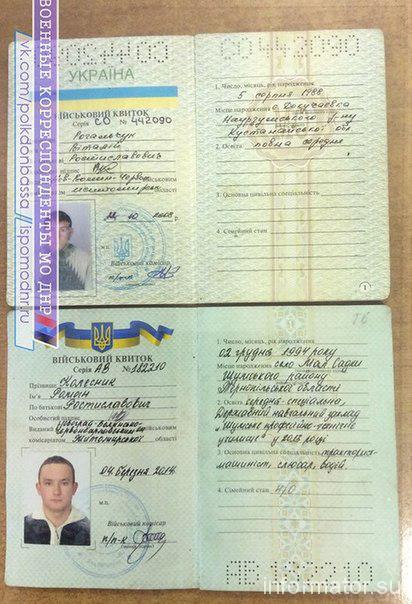 УКРАЇНА
ВІЙСЬКОВИЙ КВИТОК
Серія СО № 442090
Віталій
Ростиславович
10 2008
Військовий комісар
СО 442090
1. Число, місяць, рік народження
5 серпня 1988
Місце народження с. Докучаевка
Наурзумського р-ну
Кустанайської обл
2. Освіта повна середня
3. Основна цивільна спеціальність
4. Сімейний стан
1
ВОЕННЫЕ КОРРЕСПОНДЕНТЫ МО ДНР
vk.com/polkdonbassa
Ispomodnr.ru
ВІЙСЬКОВИЙ КВИТОК
Серія АВ № 182210
Прізвище Колесник
Ім'я Роман
По батькові Ростиславович
Особистий підпис
Виданий
військовим
комісаріатом Житомирської області
04 березня 2014
Військовий комісар
п/п-к
1. Число, місяць, рік народження
02 грудня 1994 року
Місце народження село Малі Садки
Шумського району
Тернопільської області
2. Освіта середня-спеціальна,
Державний навчальний заклад
"Шумське професійно-технічне
училище" у році
3. Основна цивільна спеціальність тракторист-
машиніст, слюсар, водій.
4. Сімейний стан н/о
АВ 182210
informator.su